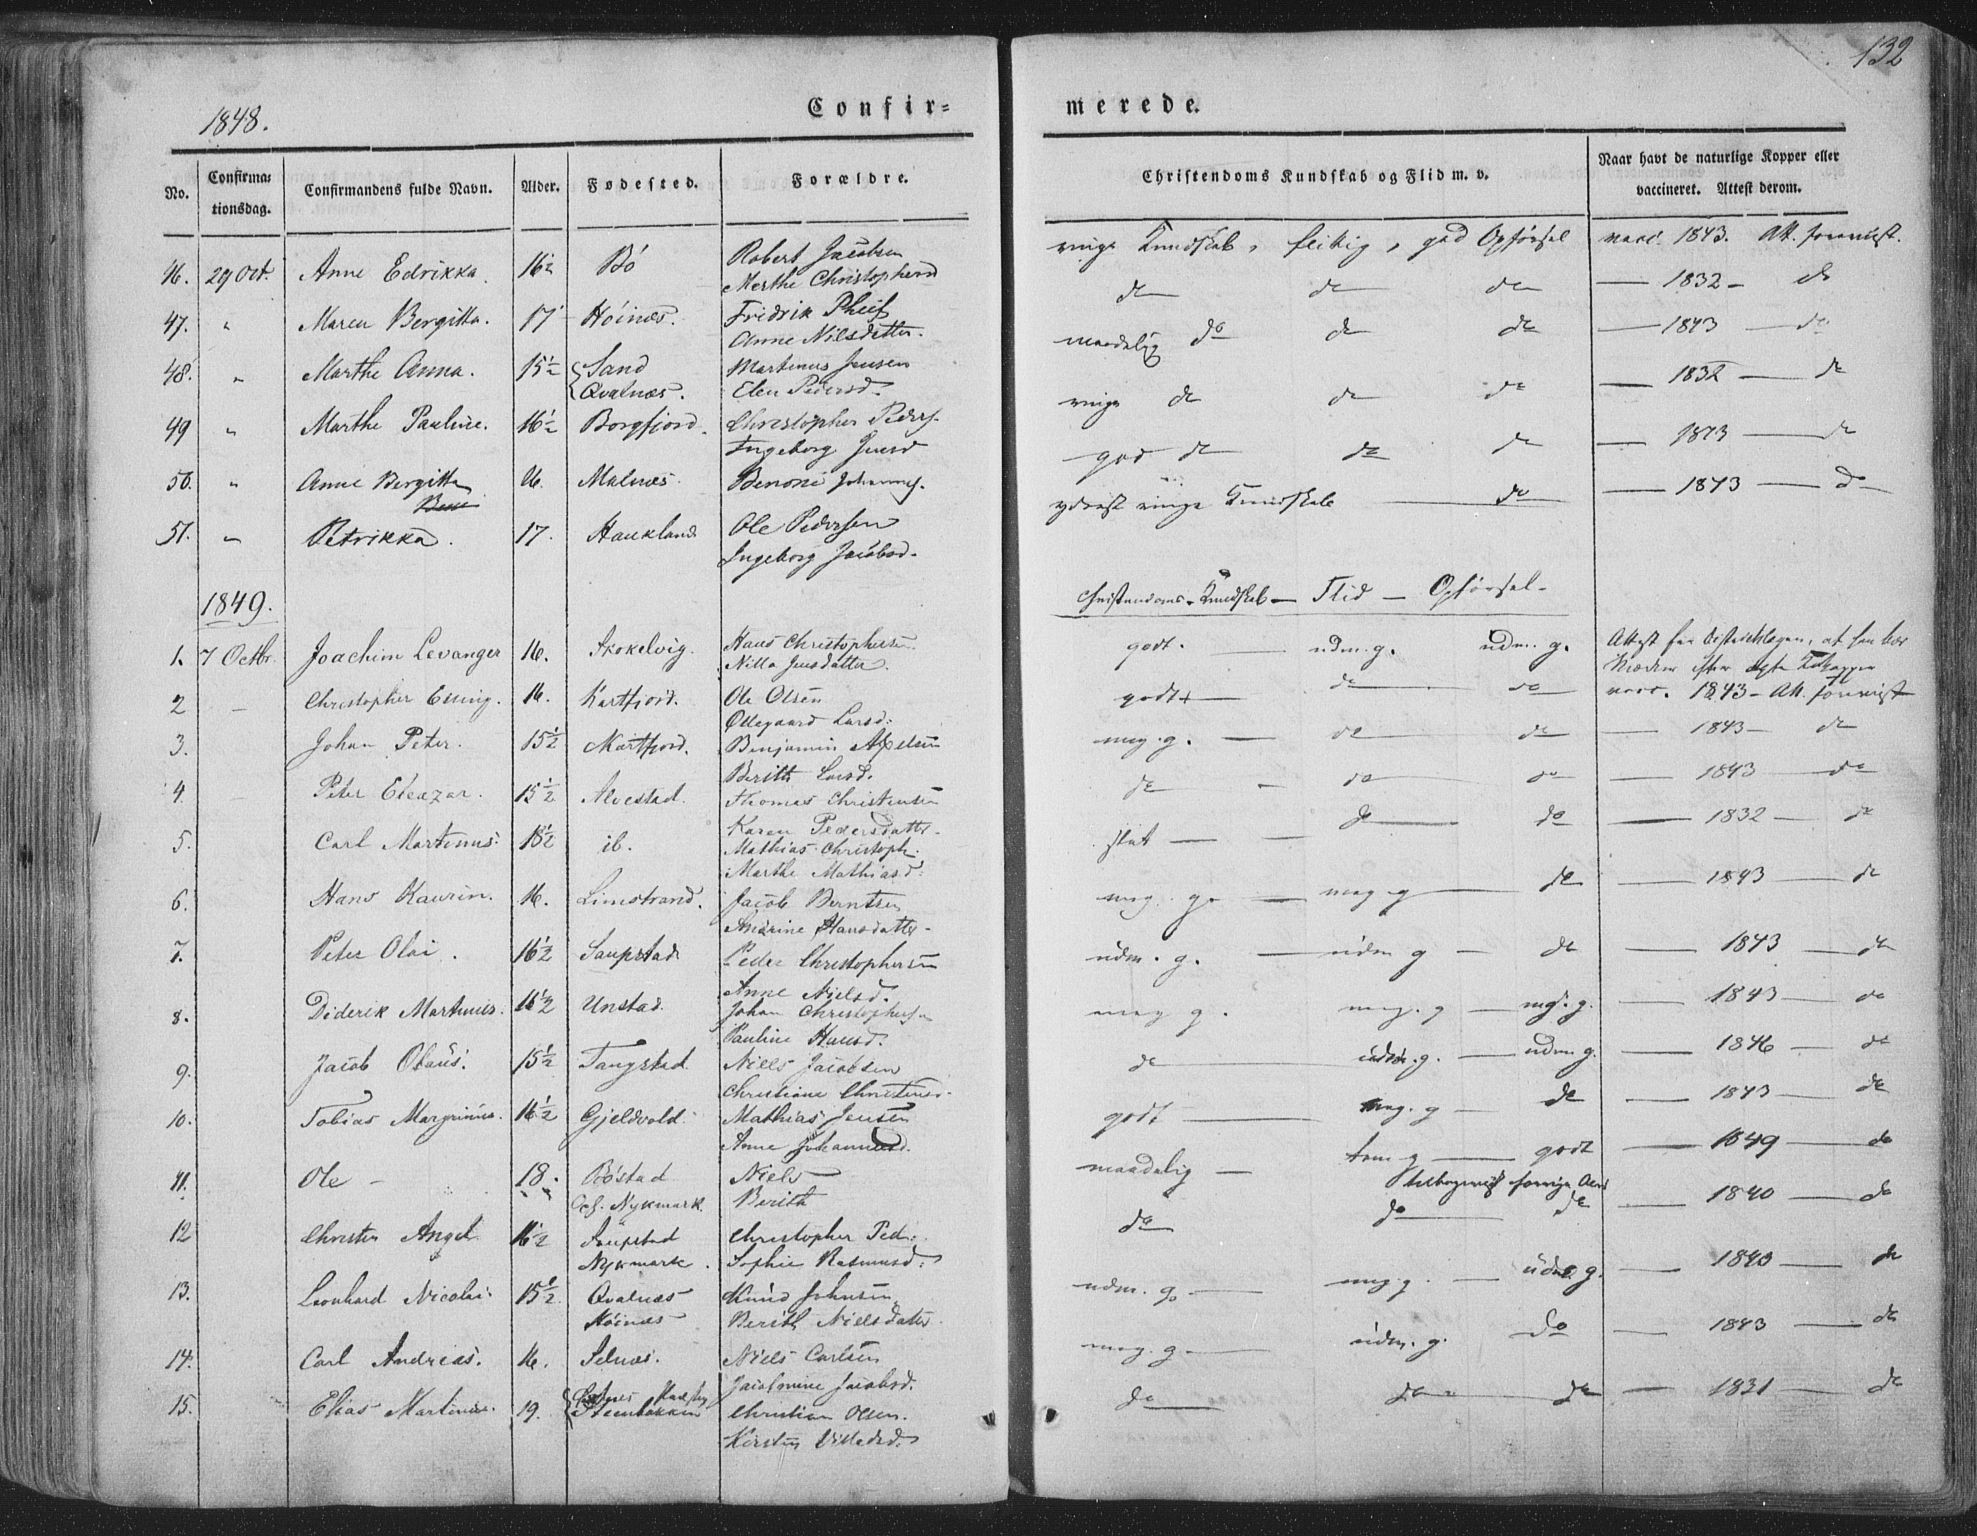 132
1848.
Confir=
merede.
No.
Confirma=
tionsdag.
Confirmandens fulde Navn.
Alder.
Fødested.
Forældre.
Christendoms Kundskab og Flid m. v.
Naar havt de naturlige Kopper eller
vaccineret. Attest derom.
46. 29 Oct. Anne Edrikka. 16½ Bö Robert Jacobsen
Merthe Christophersd
ringe Kundskab, flittig, god Opførsel vacc. 1843. Att. foreviist.
47. " Maren Bergitta. 17 Höines. Fridrik
Anne Nilsdatter.
do do do — 1832 — do
48. " Marthe Anna. 15½ Sand Martinus Jensen
Qvalnæs. Elen Pedersd.
maadelig do do do — 1843 — do
49 " Marthe Pauline. 16½ Borgfjord. Christopher Peders.
Ingeborg Jensd
ringe do do do — 1832 — do
50. " Anne Bergitta 16. Malnæs. Benoni Johannes.
god do do do — 1843 — do
51. " Petrikka. 17. Haukland Ole Pedersen
Ingeborg Jacobsd.
yderst ringe Kundskab — do — 1843 — do
1849.
Christendoms-Kundskab — Flid — Opførsel.
1. 7 Octbr. Joachim Levanger 16. Skokelvig. Hans Christophersen
Nilla Jensdatter.
godt. — udm. g. udm. g.
2 — Christopher Elling. 16. Kartfjord. Ole Olsen
Ollegaard Larsd.
godt — do do vacc. 1843 — Att. foreviist
3. Johan Peter. 15½ Mærtfjord. Benjamin Axelsen
Berith Larsd.
meg. g. — do do — 1843 — do
4. Peter Eleazar. 15½ Alvestad. Thomas Christensen
Karen Pedersdatter
do — do do — 1843 — do
5. Carl Martinus. 18½ ib. Mathias Christoph.
Marthe Mathiasd.
slet — do do — 1832 — do
6. Hans Kaurin. 16. Limstrand. Jacob Berntsen
Andrine Hansdatter
meg. g. — meg. g — do — 1843 — do
7. Peter Olai. 16½ Saupstad Peder Christophersen
Anne Nielsd.
udm. g. — udm g — do — 1843 — do
8. Diderik Martinus. 16½ Unstad. Johan Christophersen
Pauline Hansd.
meg g. meg. g — meg. g. — 1843 — do
9. Jacob Olaus. 15½ Tangstad. Niels Jacobsen
Christiane Christensd.
do udm. g. — udm. g. — 1846 — do
10. Tobias Margrinus. 16½ Gjeldvold. Mathias Jensen
Anne Johannesd.
godt — meg. g — do — 1843 — do
11. Ole — 18. Böstad Niels
Nykmark. Berith
maadelig — — godt — 1849 — do
12 Christen Angel 16½ Saupstad Christopher Ped.
Nykmark. Sophie Rasmusd.
do do do — 1840 — do
13. Leonhard Nicolai 15½ Qvalnæs Knud Johnsen
Höinæs Berith Nielsdatter
udm. g. — meg. g. — udm. g. — 1843 — do
14. Carl Andreas. 16. Selnæs. Niels Carlsen
Jacobmine Jacobsd.
meg. g. — udm. g. do — 1843 — do
15. Elias Martinus. 19. Steenbakken Christian Olsen.
Kirsten Villadsd.
do — do — do — 1831 — do